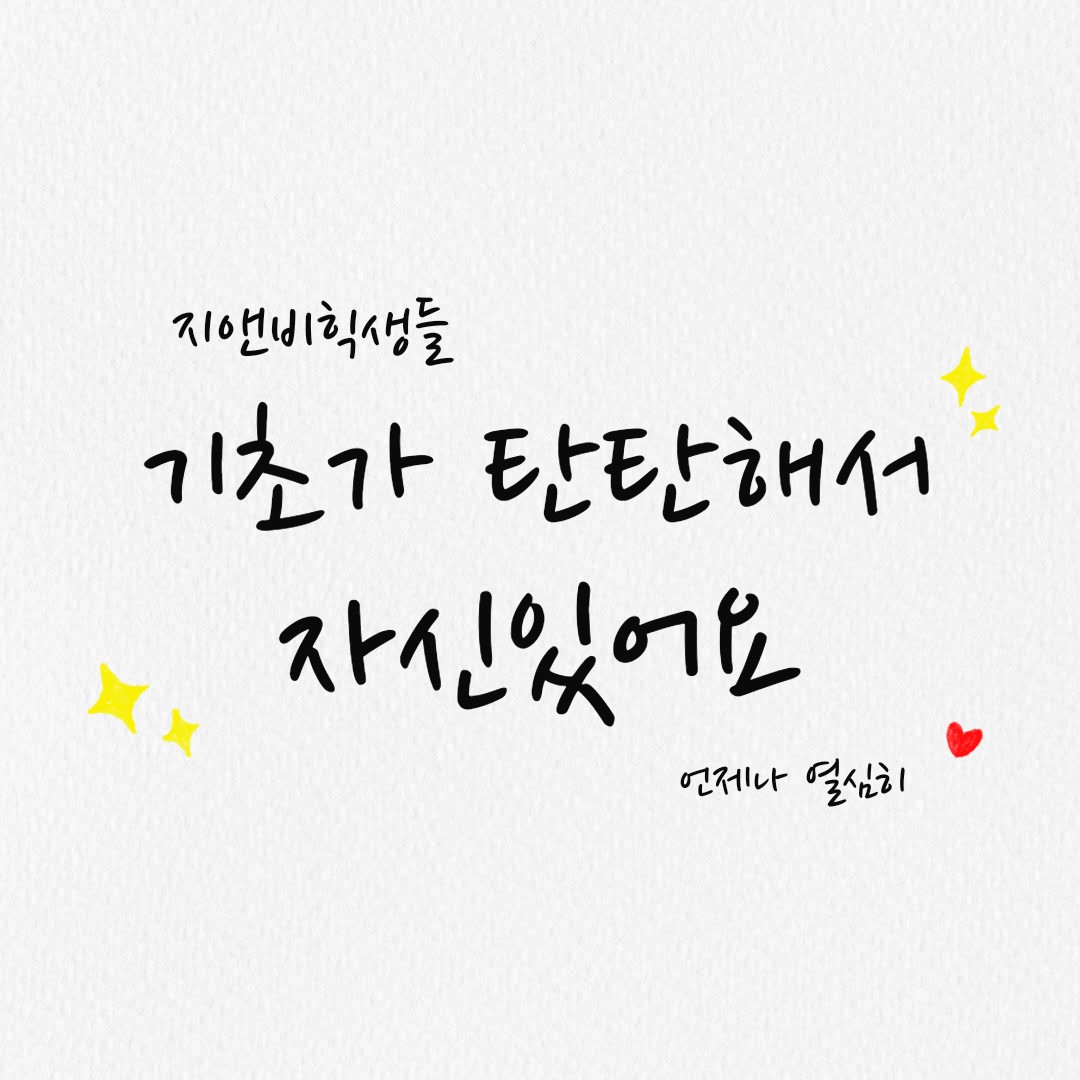 지앤비학생들
기초가 탄탄해서
자신있어요
언제나 열심히